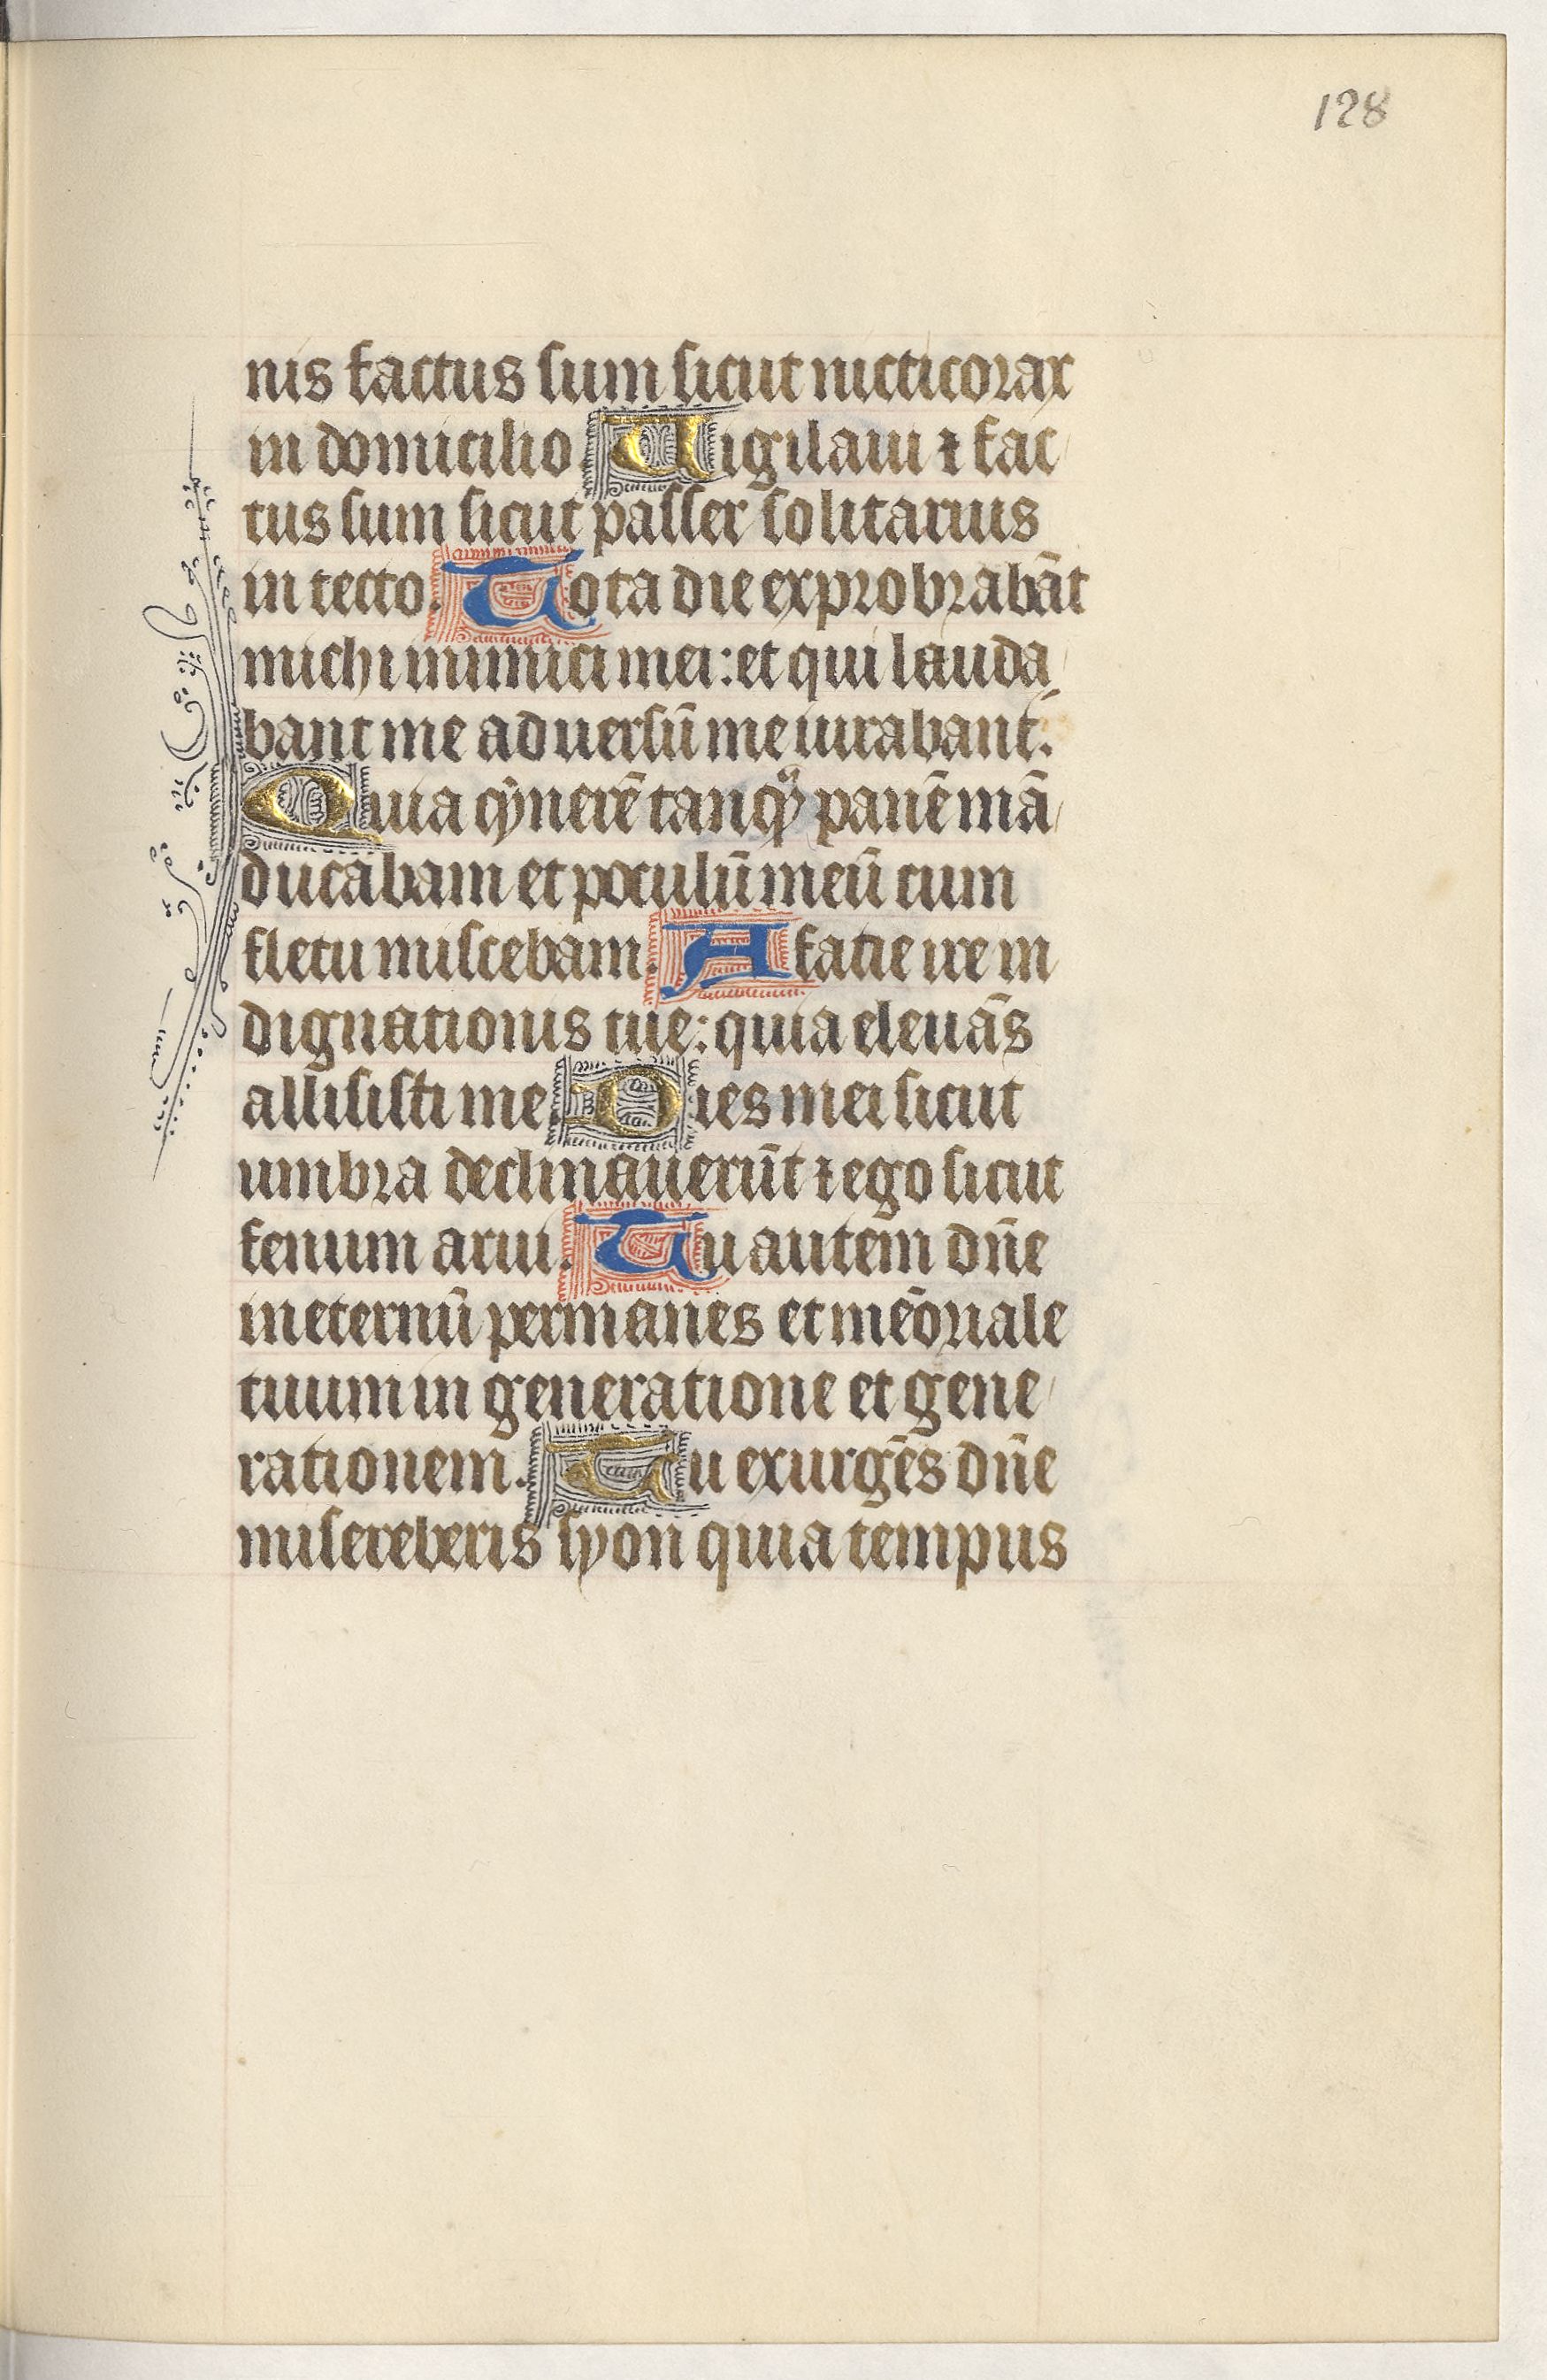 128
nis factus sum sicut nicticorax
in domicilio. Uigilaui ⁊ fac
tus sum sicut passer solitarius
in tecto. Tota die exprobrabāt
michi inimici mei: et qui lauda
bant me aduersū me iurabant.
Quia cynerē tanqͣ panē mā
ducabam et poculū meū cum
fletu miscebam. A facie ire in
dignationis tue: quia eleuās
allisisti me. Dies mei sicut
umbra declinauerūt ⁊ ego sicut
fenum arui. Tu autem dn̄e
ineternū permanes et mēoriale
tuum in generatione et gene
rationem. Tu exurgēs dn̄e
misereberis syon quia tempus